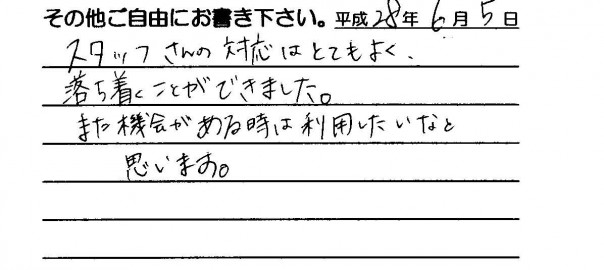 その他ご自由にお書き下さい。平成28年6月5日
スタッフさんの対応はとてもよく、
落ち着くことができました。
また機会がある時は利用したいなと
思います。